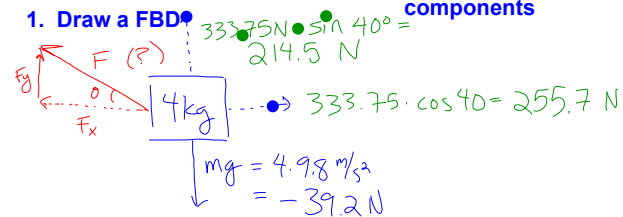 1. Draw a FBD
components
333.75N • sin 40° =
214.5 N
F (?)
Fy
θ
Fx
4kg
333.75 · cos 40 = 255.7 N
mg = 4 · 9.8 m/s²
= -39.2 N